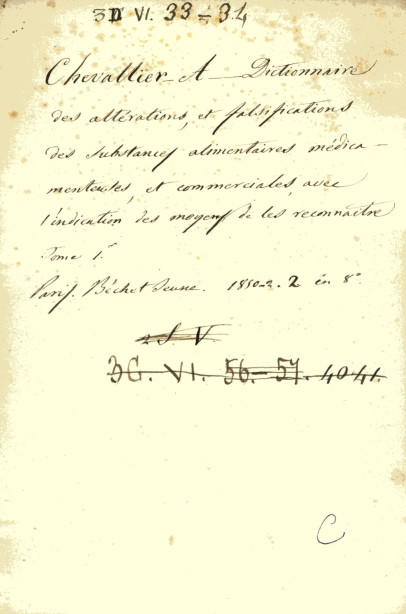 3D VI. 33-34
Chevallier A Dictionnaire
des altérations, et falsifications
des substances alimentaires médica-
menteuses, et commerciales, avec
l'indication des moyens de les reconnaître
Tome 1.r
Paris. Béchet Jeune. 1850-2. 2 in 8°
V.
3G. VI. 56-57. 40 41.
C